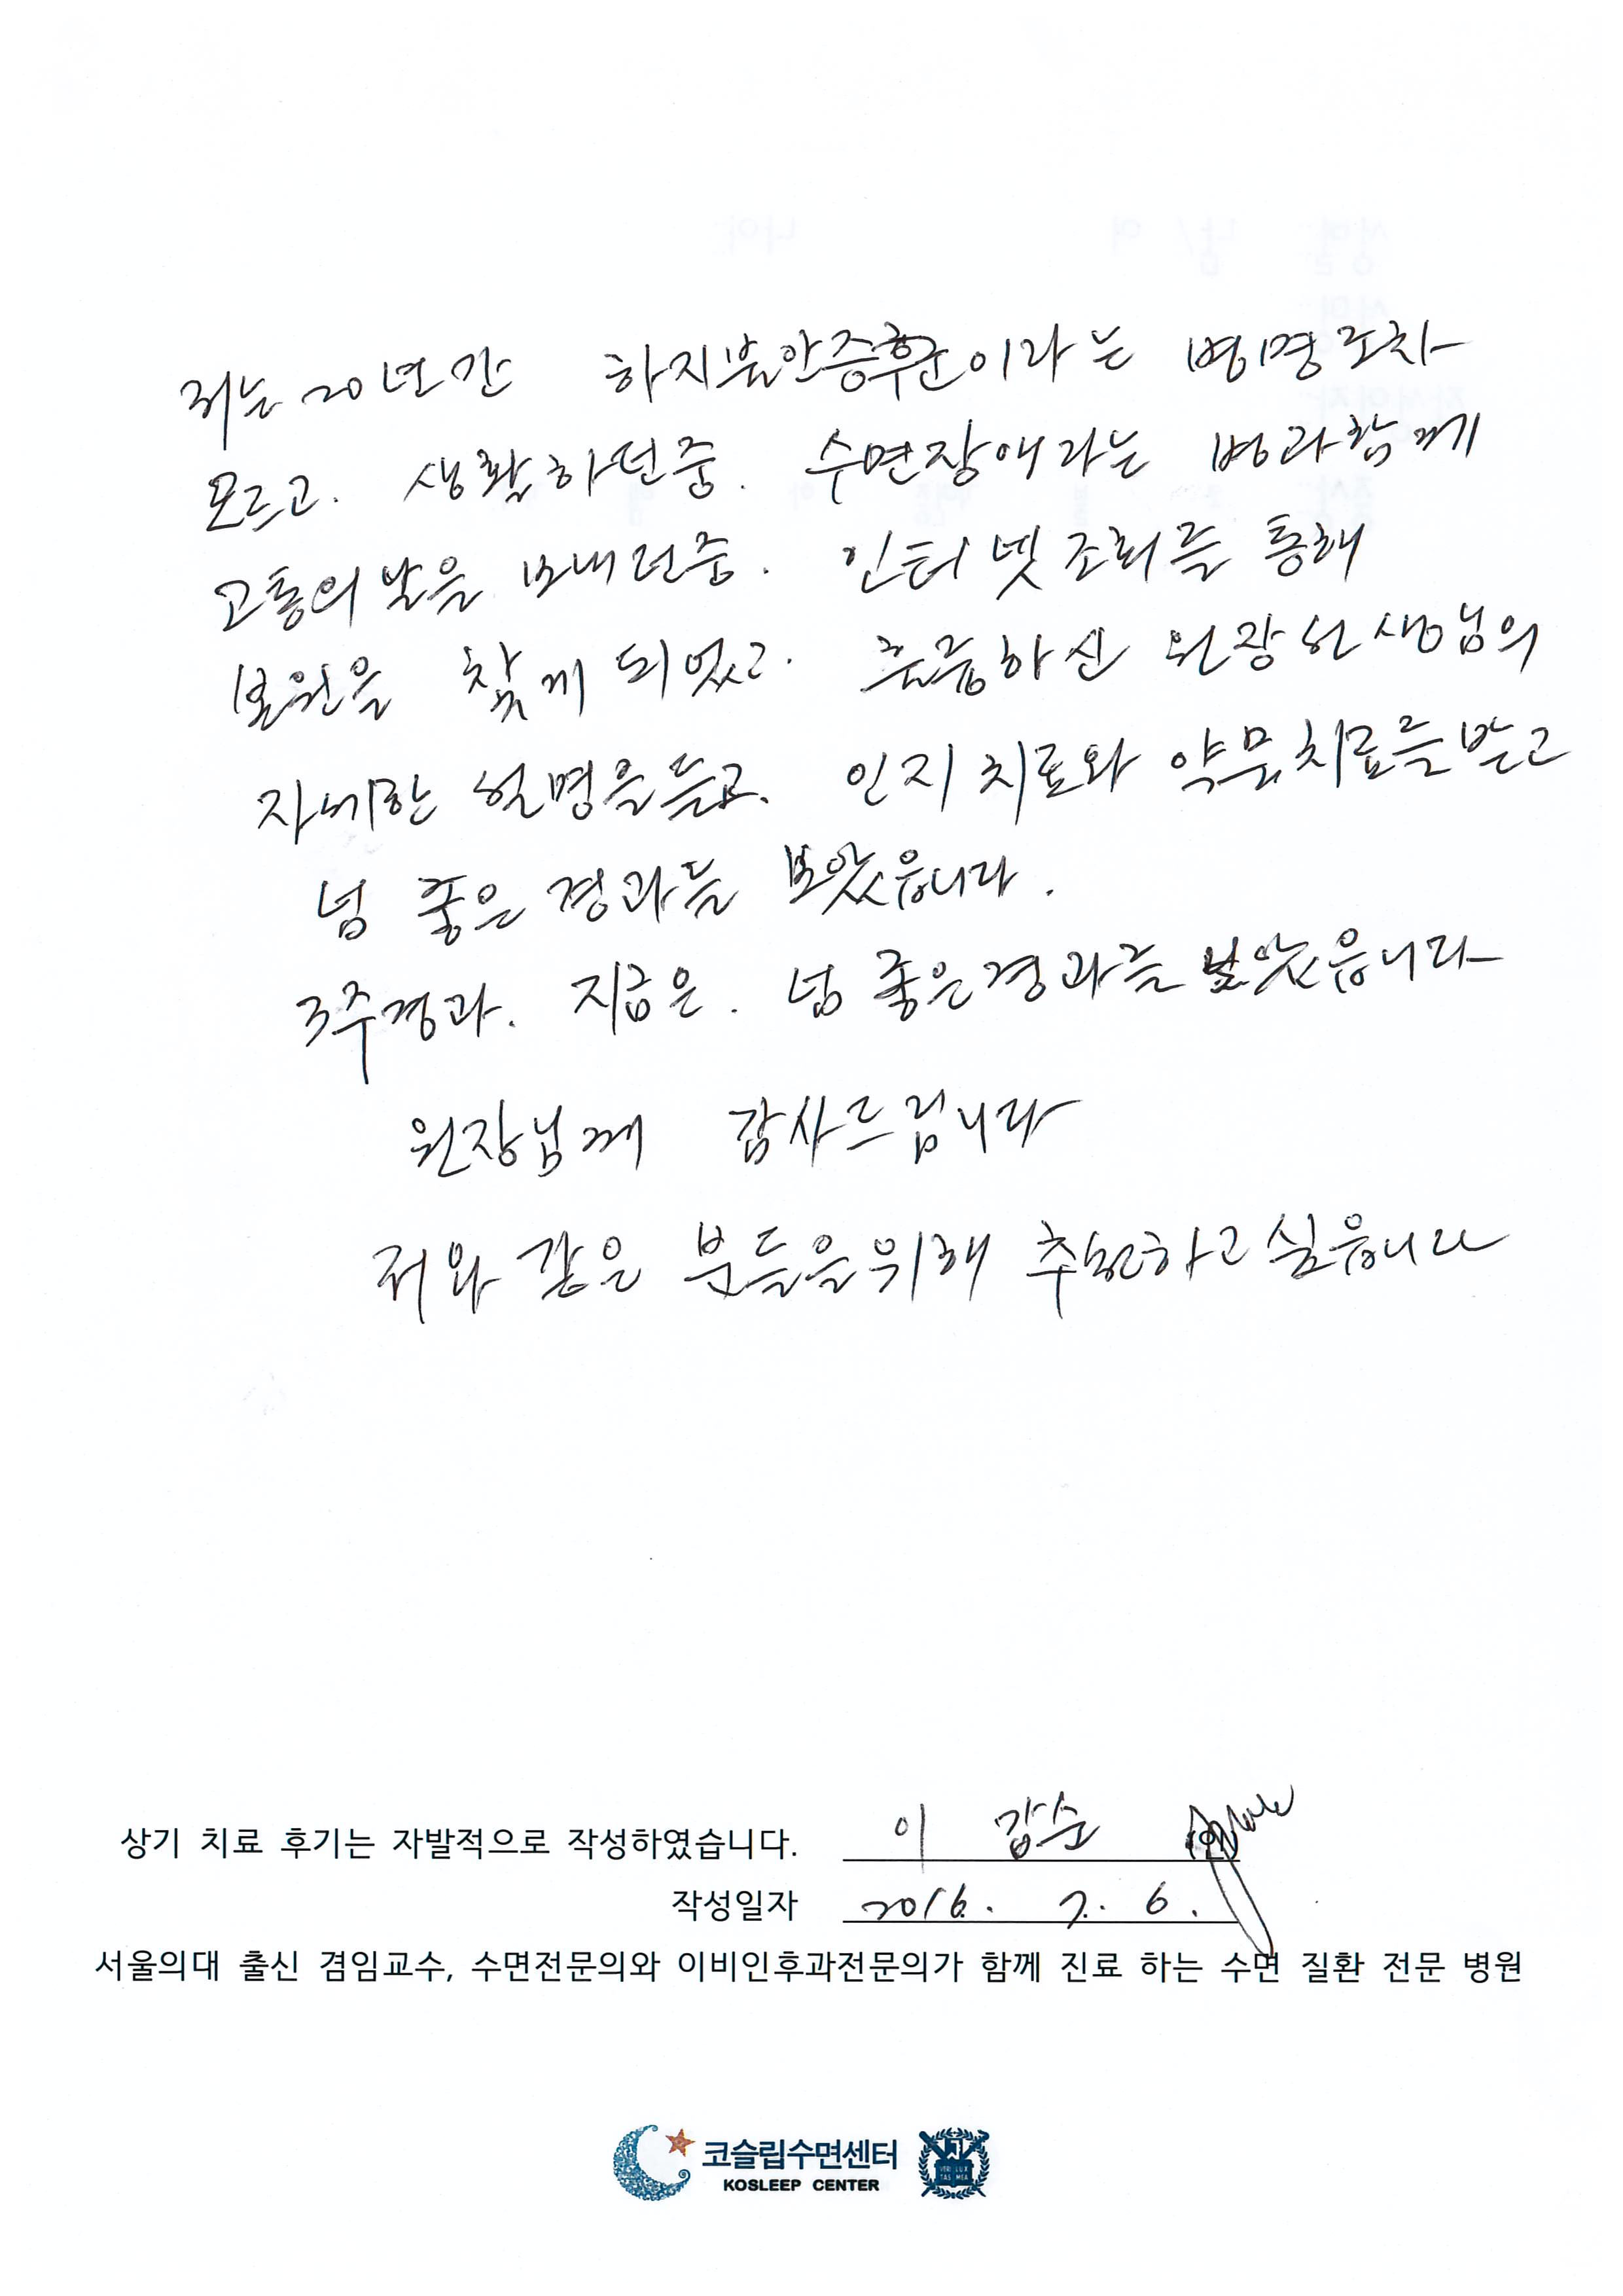 저는 20년간 하지불안증후군이라는 병명조차
모르고. 생활하던중. 수면장애라는 병과함께
고통의날을 보내던중. 인터넷조회를 통해
본원을 찾게 되었고. 훌륭하신 원장선생님의
자세한 설명을듣고. 인지치료와 약물치료를받고
넘 좋은경과를 보았읍니다.
3주경과. 지금은. 넘 좋은경과를 보았읍니다
원장님께 감사드립니다
저와 같은 분들을위해 추천하고싶읍니다
상기 치료 후기는 자발적으로 작성하였습니다. 이 갑순 (인)
작성일자 2016. 7. 6.
서울의대 출신 겸임교수, 수면전문의와 이비인후과전문의가 함께 진료 하는 수면 질환 전문 병원
코슬립수면센터
KOSLEEP CENTER
VERI LUX
TAS MEA